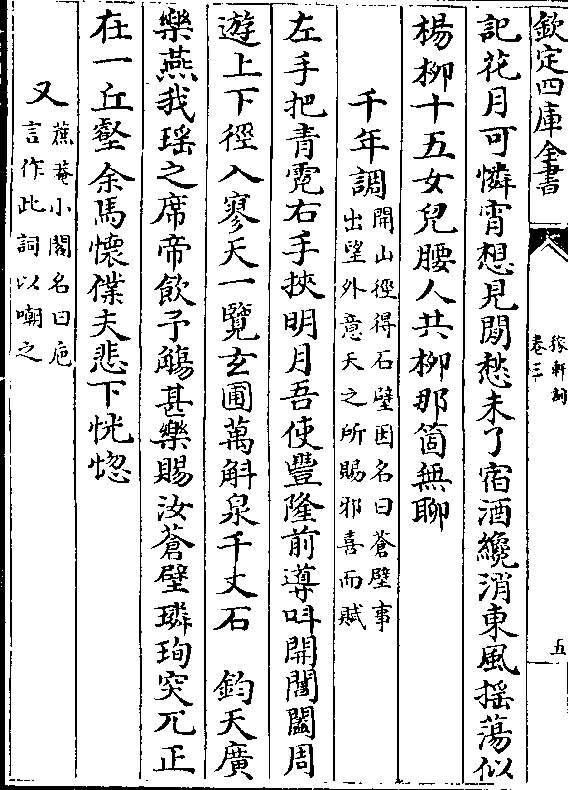 欽定四庫全書
稼軒詞
卷三
五
記花月可憐宵想見閒愁未了宿酒纔消東風搖蕩似
楊柳十五女兒腰人共柳那箇無聊
千年調
開山徑得石壁因名曰蒼壁事
出望外意天之所賜邪喜而賦
左手把青霓右手挾明月吾使豐隆前導叫開閶闔周
遊上下徑入寥天一覽玄圃萬斛泉千丈石　鈞天廣
樂燕我瑤之席帝飲予觴甚樂賜汝蒼壁璘珣突兀正
在一丘壑余馬懷僕夫悲下恍惚
又
蔗菴小閣名曰巵
言作此詞以嘲之